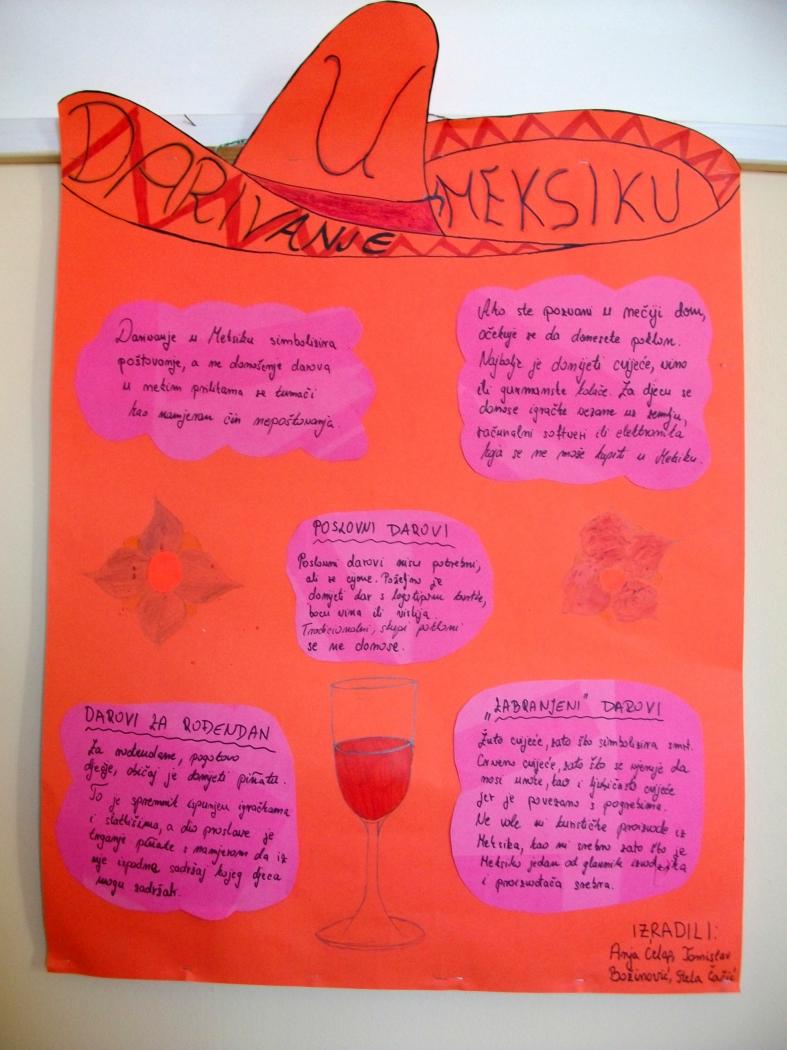 DARIVANJE U MEKSIKU
Darivanje u Meksiku simbolizira
poštovanje, a ne donošenje darova
u nekim prilikama se tumači
kao namjeran čin nepoštovanja.
Ako ste pozvani u nečiji dom,
očekuje se da donesete poklon.
Najbolje je donijeti cvijeće, vino
ili gurmanske kolače. Za djecu se
donose igračke vezane uz zemlju,
računalni softveri ili elektronika
koja se ne može kupiti u Meksiku.
POSLOVNI DAROVI
Poslovni darovi nisu potrebni,
ali se cijene. Poželjno je
donijeti dar s logotipom tvrtke,
bocu vina ili viskija.
Tradicionalni, skupi pokloni
se ne donose.
DAROVI ZA ROĐENDAN
Za rođendane, pogotovo
dječje, običaj je donijeti piñatu.
To je spremnik ispunjen igračkama
i slatkišima, a dio proslave je
trganje piñate s namjerom da iz
nje ispadne sadržaj kojeg djeca
mogu zadržati.
„ZABRANJENI" DAROVI
Žuto cvijeće, zato što simbolizira smrt.
Crveno cvijeće, zato što se vjeruje da
nosi uroke, kao i ljubičasto cvijeće
jer je povezano s pogrebima.
Ne vole ni turističke proizvode iz
Meksika, kao ni srebro zato što je
Meksiko jedan od glavnih izvoznika
i proizvođača srebra.
IZRADILI:
Anja Čelap, Tomislav
Božinović, Stela